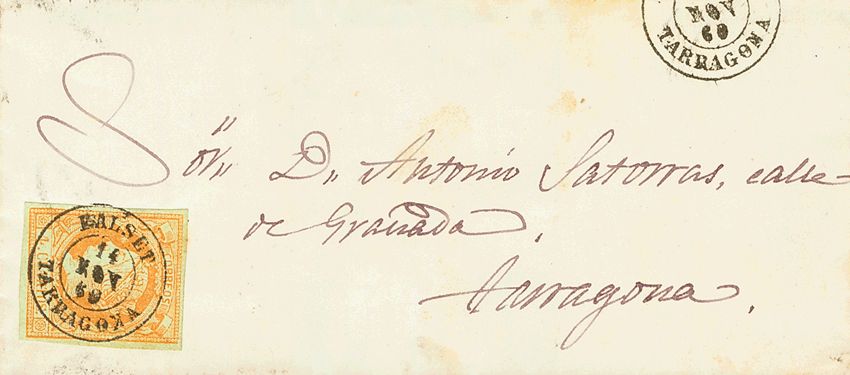 NOV
60
TARRAGONA
Sor D. Antonio Satorras, calle
de Granada.
Tarragona.
FALSET
14
NOV
60
TARRAGONA
CORREOS